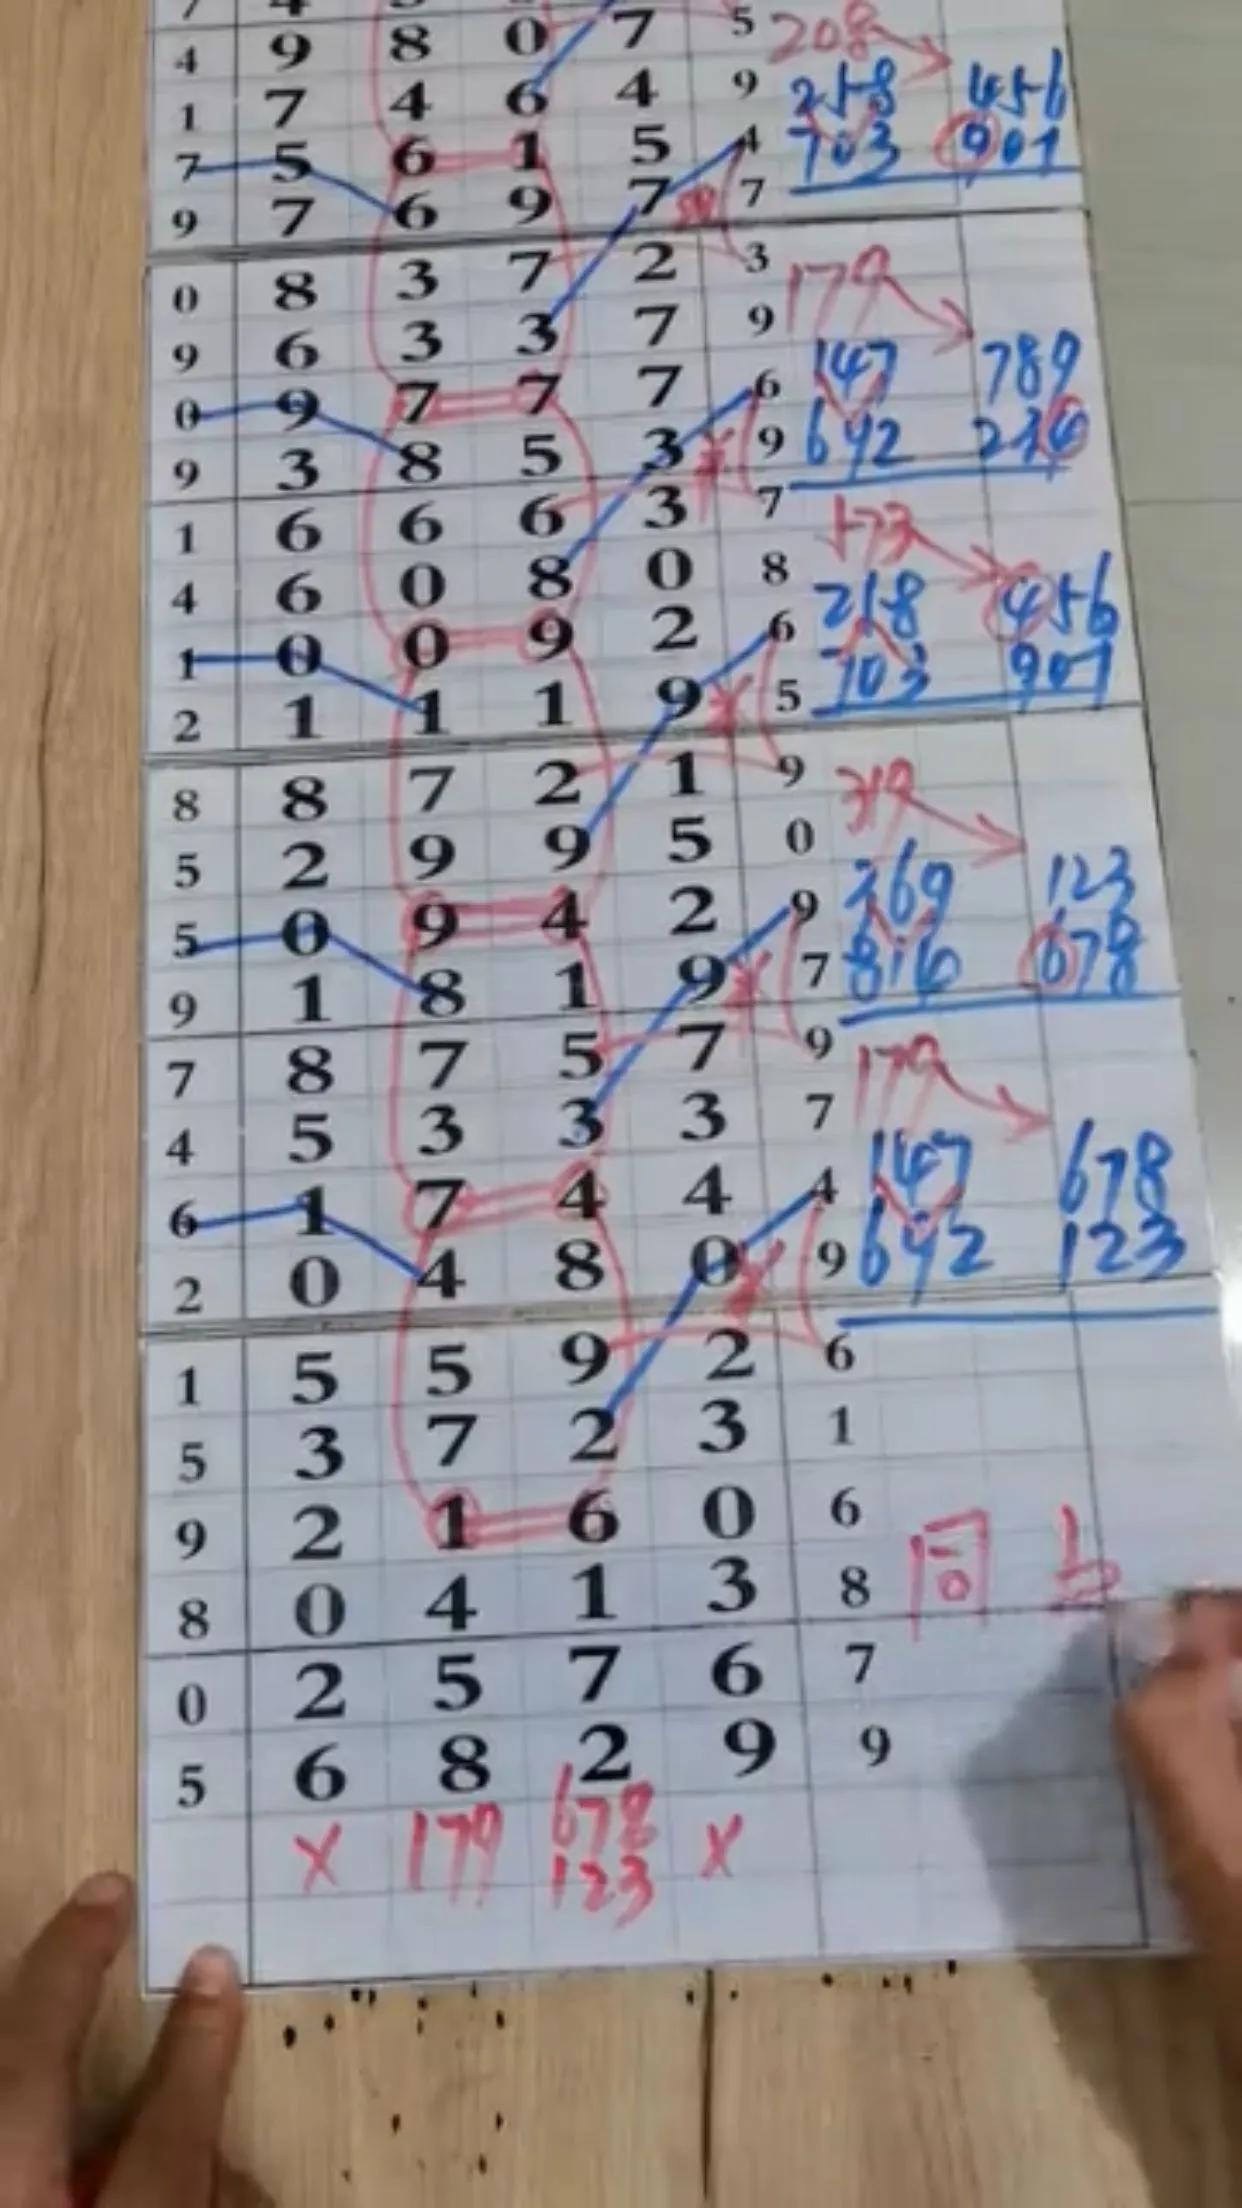 4 9 8 0 7 5 208
1 7 4 6 4 9 258 456
7 5 6 1 5 4 703 901
9 7 6 9 7 7
0 8 3 7 2 3 179
9 6 3 3 7 9 147 789
0 9 7 7 7 6 692
9 3 8 5 3 9
1 6 6 6 3 7 573
4 6 0 8 0 8 258 456
1 0 0 9 2 6 703 901
2 1 1 1 9 5
8 8 7 2 1 9 319
5 2 9 9 5 0 369 123
5 0 9 4 2 9 814 678
9 1 8 1 9 7
7 8 7 5 7 9 179
4 5 3 3 3 7 147 678
6 1 7 4 4 4 692 123
2 0 4 8 0 9
1 5 5 9 2 6
5 3 7 2 3 1
9 2 1 6 0 6
8 0 4 1 3 8
0 2 5 7 6 7
5 6 8 2 9 9
X 179 678 X
123